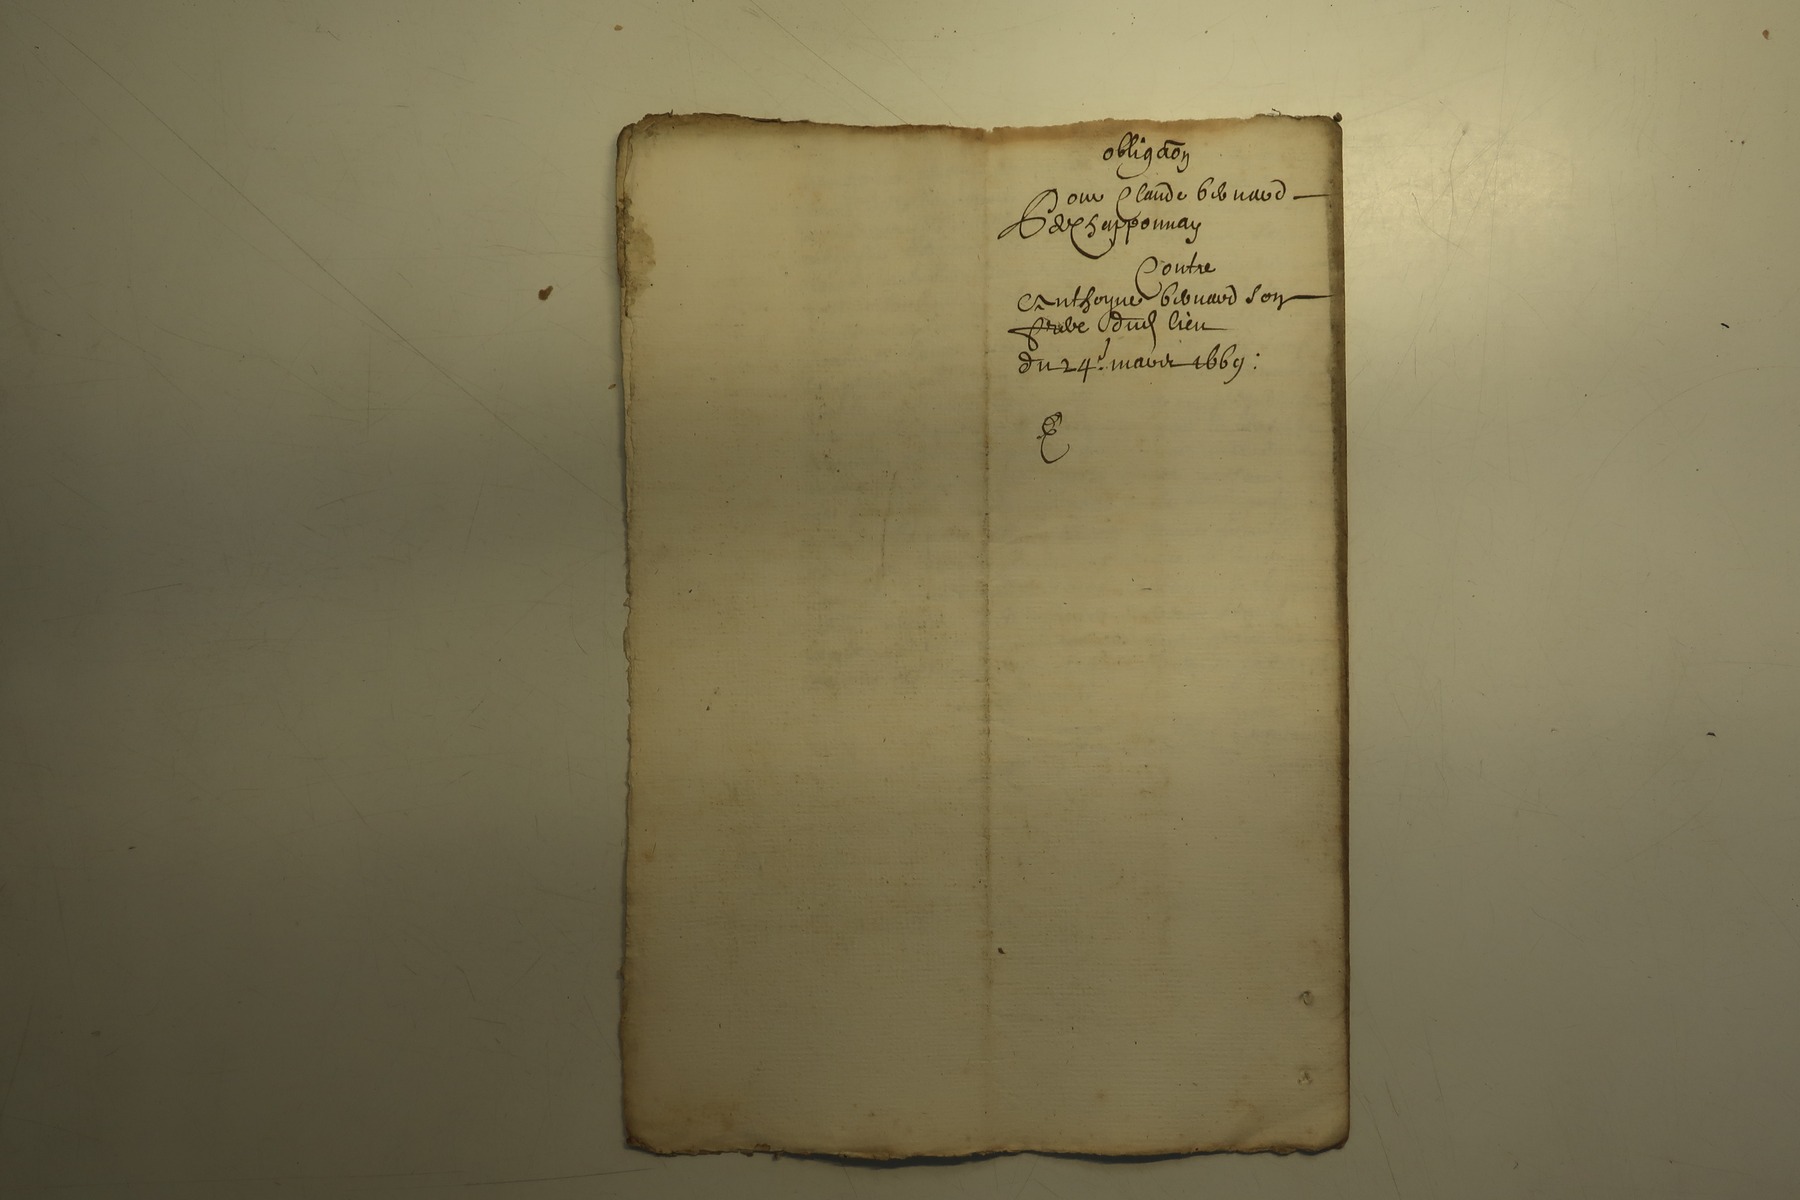 obligaõn
Pour Claude bernard
de Chapponnay
Contre
Anthoyne bernard son
frere dud lieu
du 24.e mars 1669: